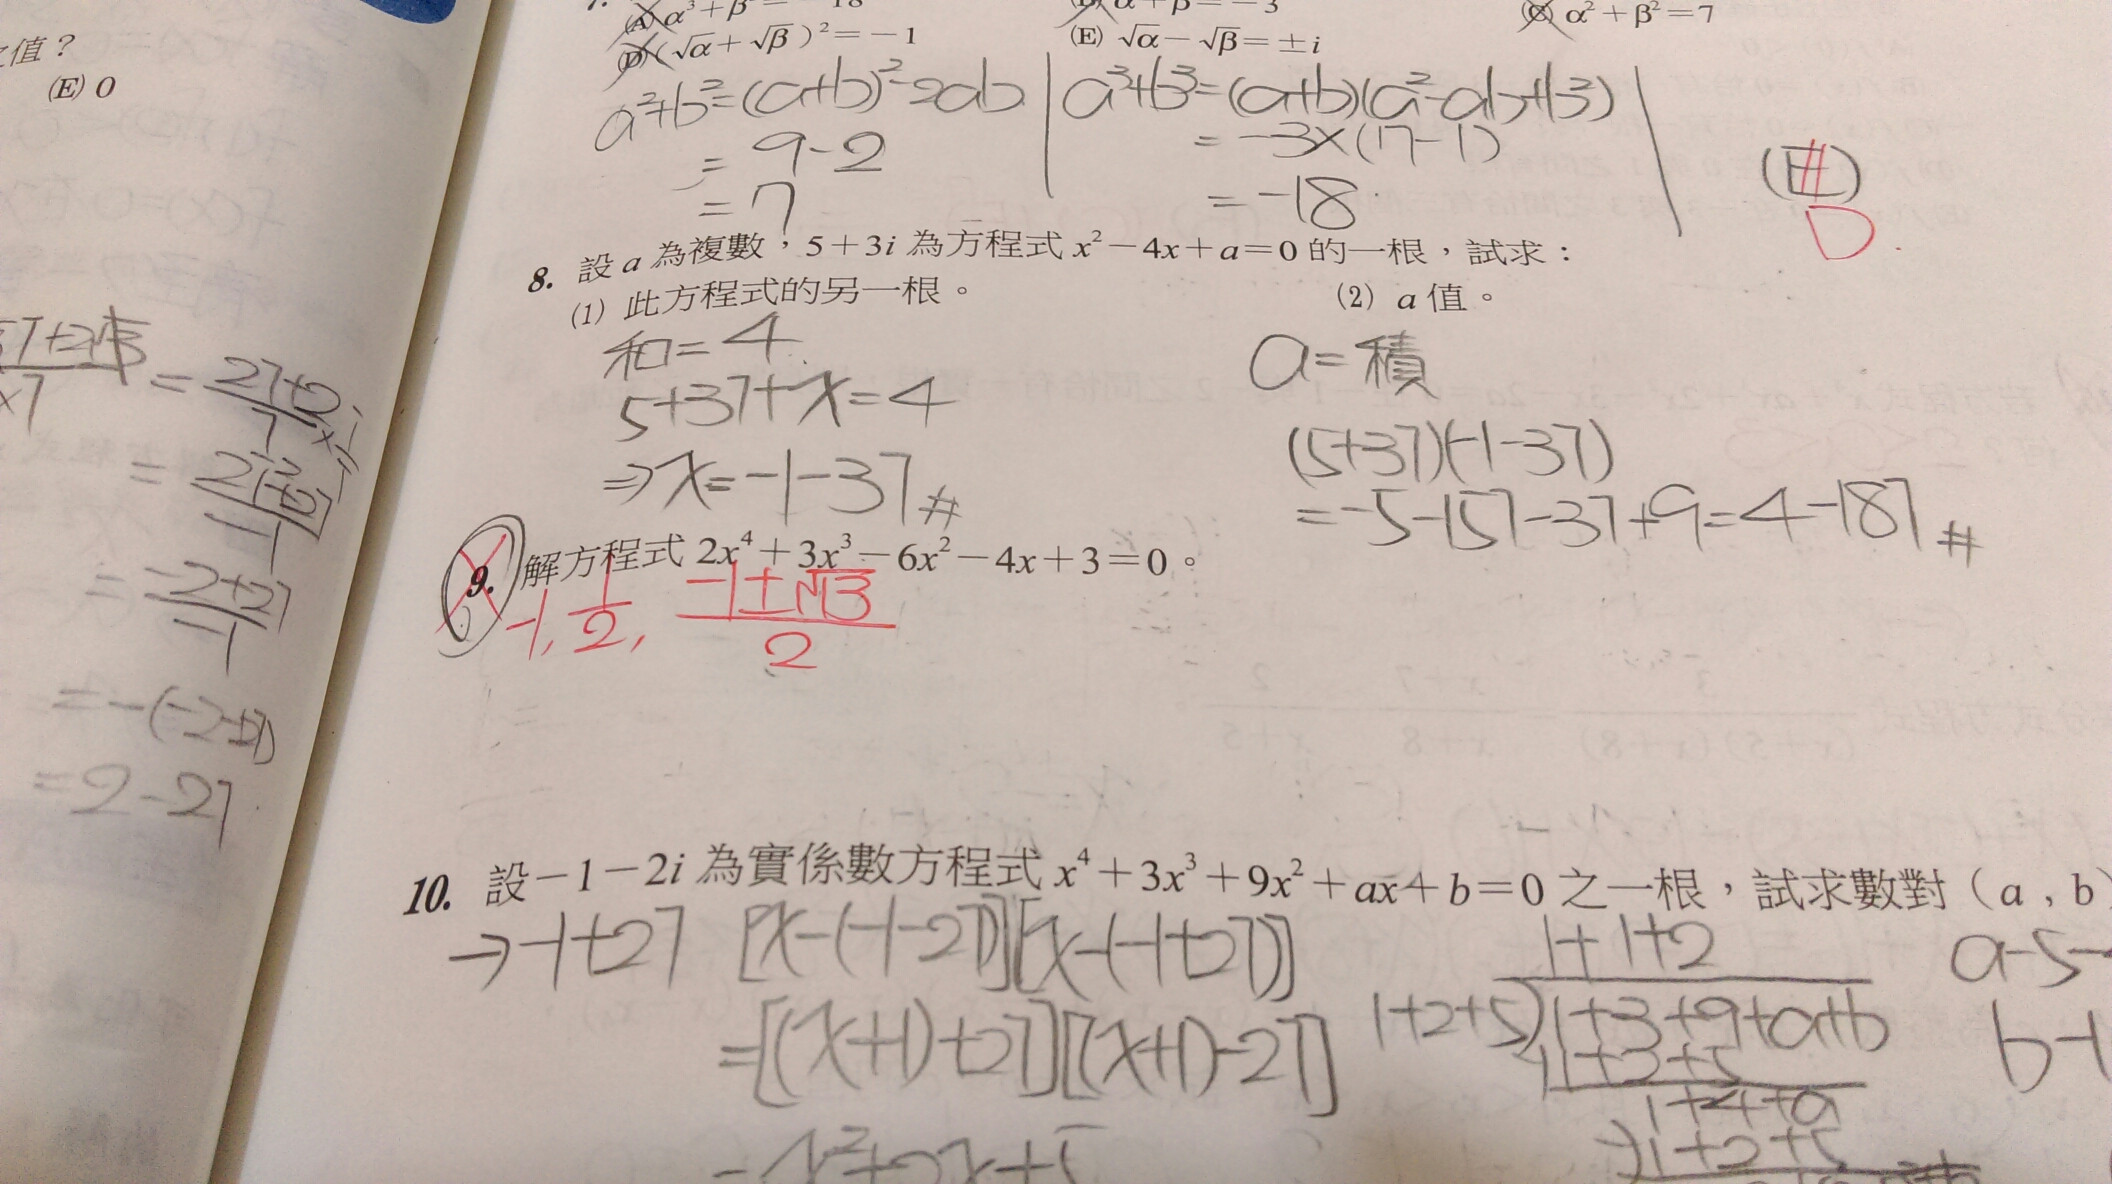 值?
(E) 0
7.
(A) α³+β³=-18
(B) α+β=-3
(C) α²+β²=7
(D) (√α+√β)²=-1
(E) √α-√β=±i
a²+b²=(a+b)²-2ab
= 9-2
= 7
a³+b³=(a+b)(a²-ab+b²)
= -3×(7-1)
= -18
(E)
D
8. 設 a 為複數,5+3i 為方程式 x²-4x+a=0 的一根,試求:
(1) 此方程式的另一根。
(2) a 值。
和=4
5+3i+x=4
⇒x=-1-3i #
a=積
(5+3i)(-1-3i)
=-5-15i-3i+9=4-18i #
9. 解方程式 2x⁴+3x³-6x²-4x+3=0。
-1, 1/2, (-1±√13)/2
= -(-2+2i)
=2-2i
10. 設-1-2i 為實係數方程式 x⁴+3x³+9x²+ax+b=0 之一根,試求數對(a,b)
→-1+2i [x-(-1-2i)][x-(-1+2i)]
=[(x+1)+2i][(x+1)-2i]
=x²+2x+5
1+1+2
1+2+5)1+3+9+a+b
1+4+a
1+2+5
a-5-
b-1